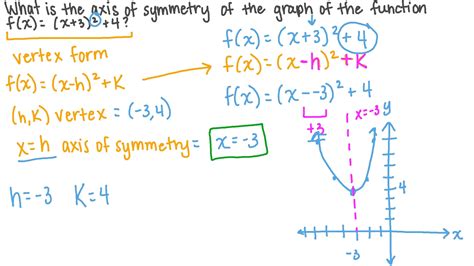 What is the axis of symmetry of the graph of the function
f(x) = (x+3)² +4?
vertex form
f(x) = (x-h)² + K
(h,K) vertex = (-3,4)
x=h axis of symmetry = x=-3
h=-3 K=4
f(x) = (x+3)² +4
f(x) = (x-h)² +K
f(x) = (x--3)² +4
+3
x=-3
y
4
x
-3